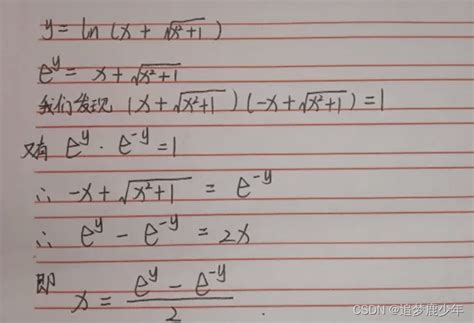 y = ln (x + √x²+1)
e^y = x + √x²+1
我们发现 (x + √x²+1) (-x + √x²+1) = 1
又有 e^y · e^-y = 1
∴ -x + √x²+1 = e^-y
∴ e^y - e^-y = 2x
即 x = (e^y - e^-y) / 2
CSDN @追梦鹿少年